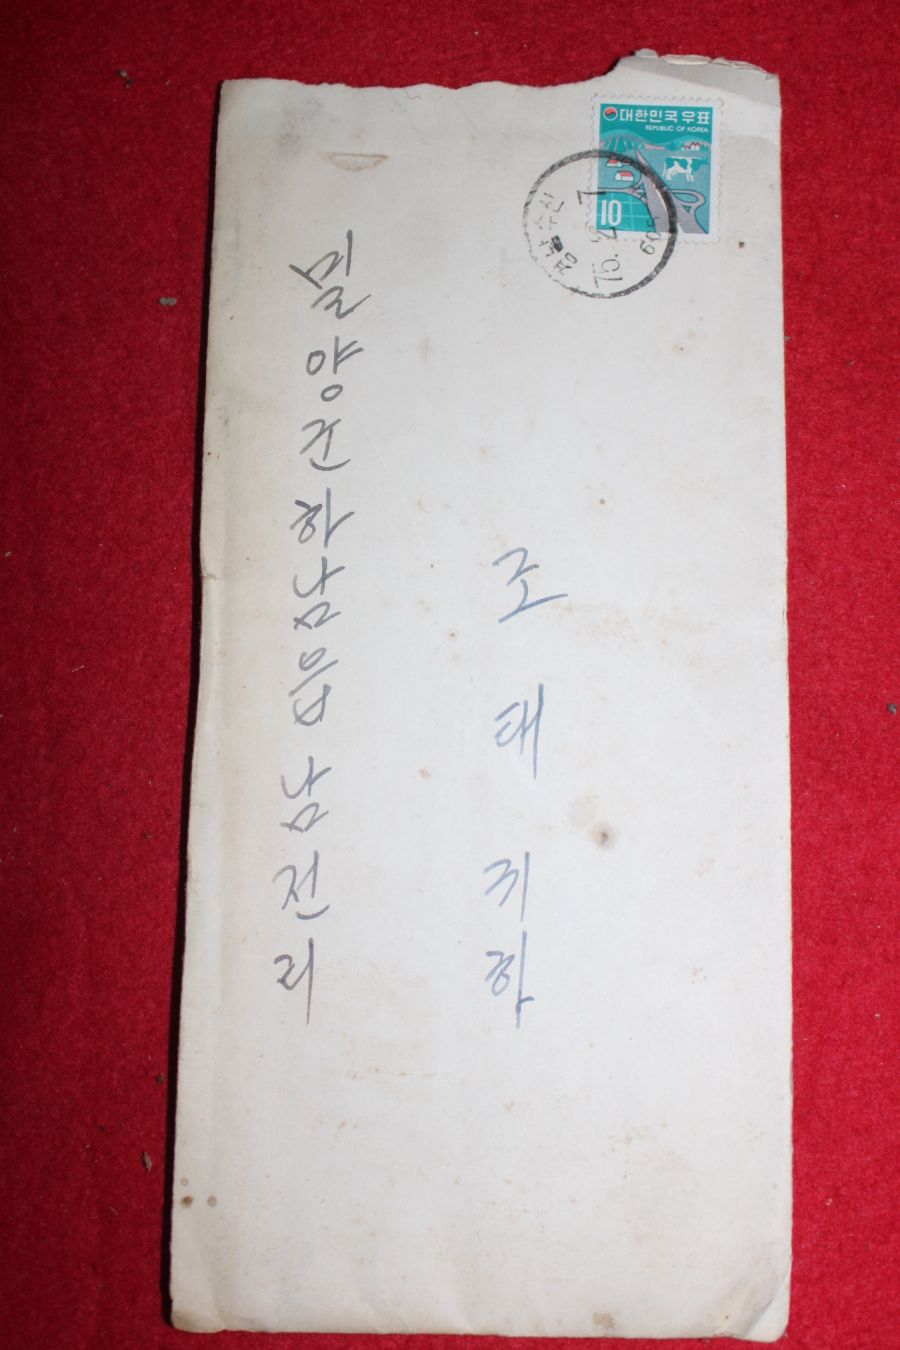 대한민국우표
REPUBLIC OF KOREA
10
경남 수산
밀양군 하남읍 남전리
조 태 귀하